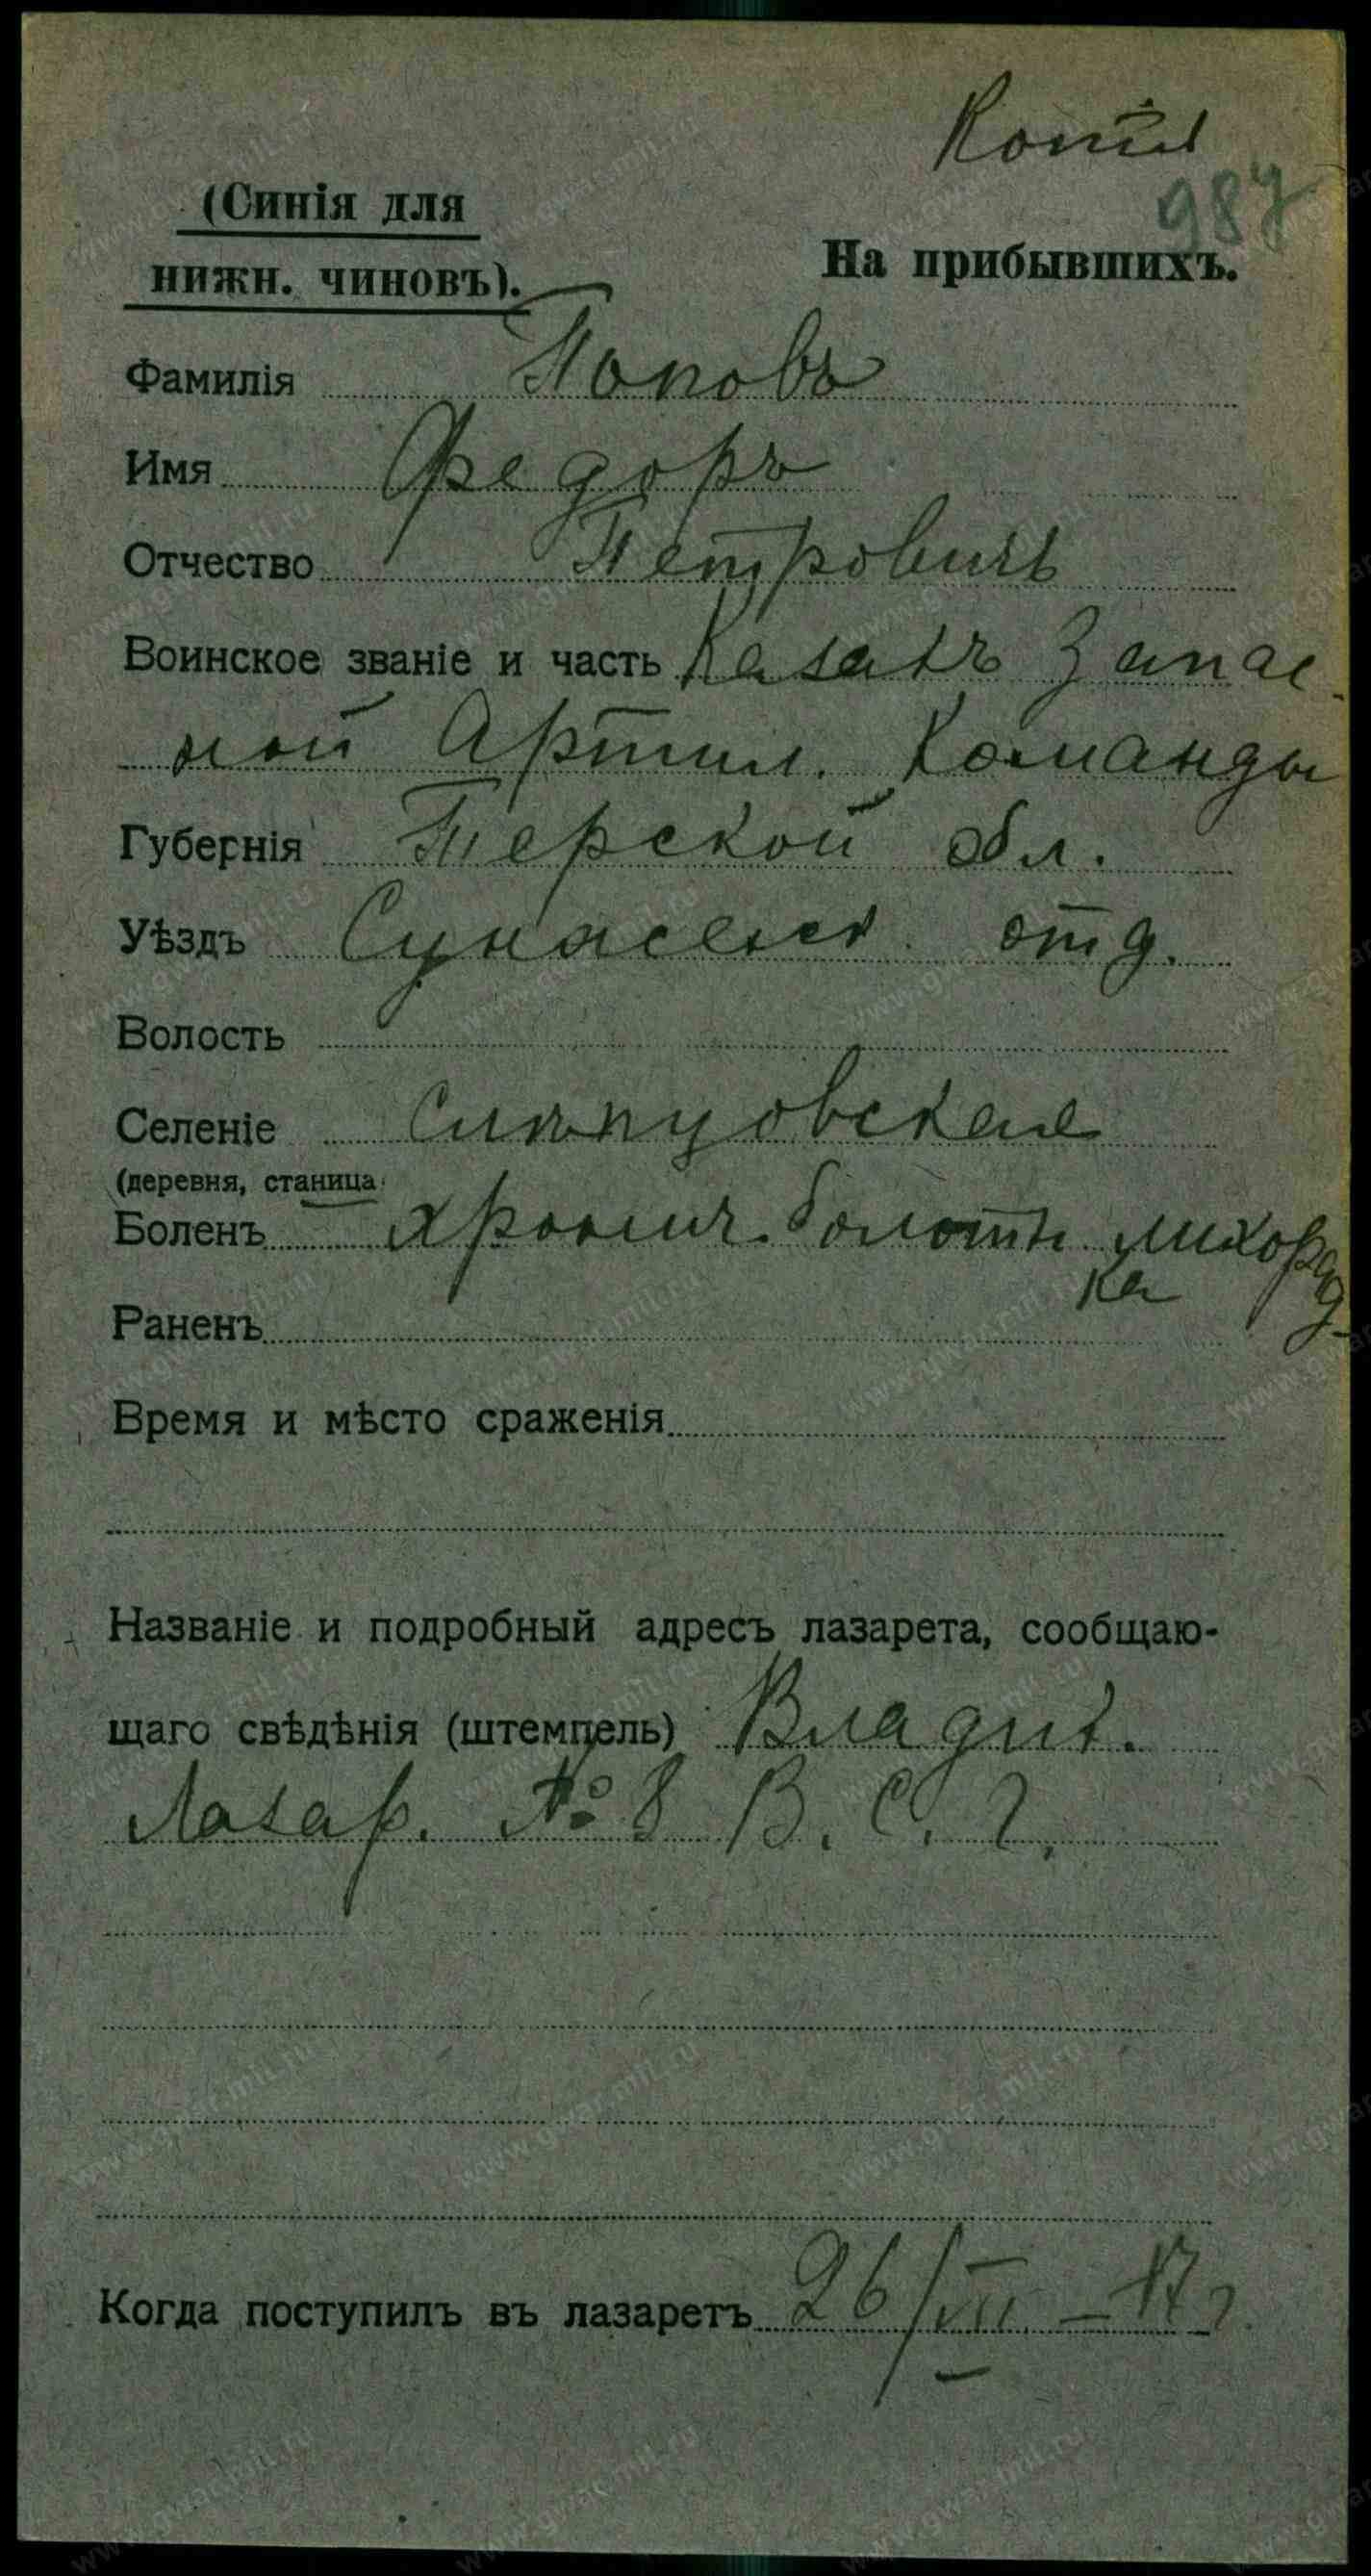 Копія
987
(Синія для
нижн. чиновъ).
На прибывшихъ.
Фамилія Поповъ
Имя Федоръ
Отчество Петровичъ
Воинское званіе и часть Казакъ Запас-
ной Артил. Команды
Губернія Терской обл.
Уѣздъ Сунженск. отд.
Волость
Селеніе Слѣпцовская
(деревня, станица
Боленъ Хронич. болотн. лихорад-
ка
Раненъ
Время и мѣсто сраженія
Названіе и подробный адресъ лазарета, сообщаю-
щаго свѣдѣнія (штемпель) Владик.
Лазар. № 8 В. С. Г.
Когда поступилъ въ лазаретъ 26/VII – 17 г.
www.gwar.mil.ru